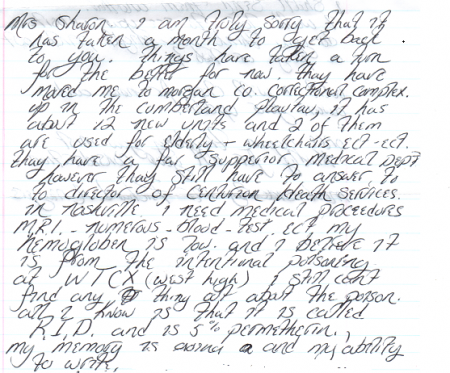 Mrs Sharon. I am Truly sorry that it
has taken a month to get back
to you. Things have taken a turn
for the better for now. thay have
moved me to morgan co correctional complex.
up in the cumberland plautau, it has
about 12 new units and 2 of them
are used for elderly + wheelchairs ect-ect.
thay have a far supperior, medical Dept
however thay still have to answer to
to director of Centurion Health Services.
in Nashville. I need medical proceedures
MRI. - numerous - blood - test, ect my
hemogloben is low. and I believe it
is from the intentional poisoning
at WTCX (west high) I still cant
find any thing out about the poison.
all I know is that it is called
R.I.D. and is 5% permetherin,
my memory is and my ability
to write.